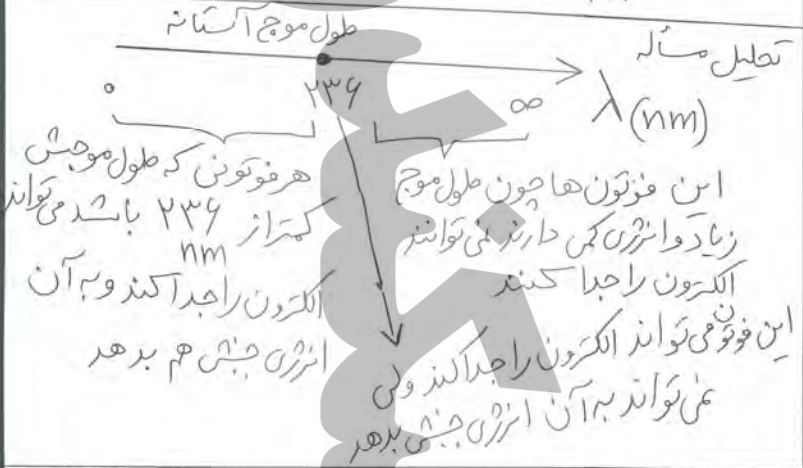 طول موج آستانه
تحلیل مسأله
۰
۲۳۶
∞
λ (nm)
هر فوتونی که طول موجش
کمتر از ۲۳۶ nm باشد می‌تواند
الکترون را جدا کند و به آن
انرژی جنبشی هم بدهد
این فوتون‌ها چون طول موج
زیاد و انرژی کمی دارند نمی‌توانند
الکترون را جدا کنند
این فوتون می‌تواند الکترون را جدا کند ولی
نمی‌تواند به آن انرژی جنبشی بدهد